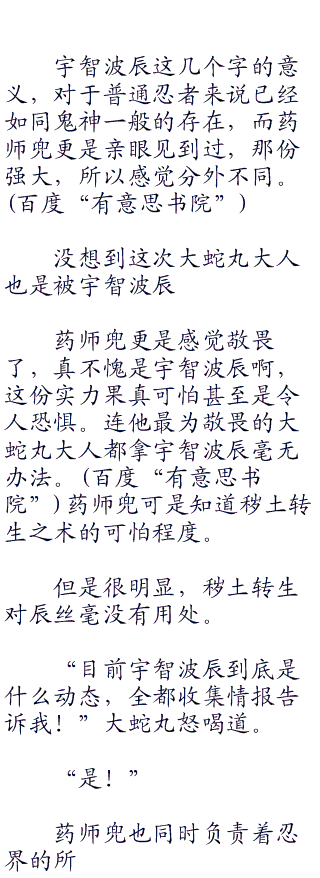 宇智波辰这几个字的意
义，对于普通忍者来说已经
如同鬼神一般的存在，而药
师兜更是亲眼见到过，那份
强大，所以感觉分外不同。
(百度“有意思书院”)
没想到这次大蛇丸大人
也是被宇智波辰
药师兜更是感觉敬畏
了，真不愧是宇智波辰啊，
这份实力果真可怕甚至是令
人恐惧。连他最为敬畏的大
蛇丸大人都拿宇智波辰毫无
办法。(百度“有意思书
院”)药师兜可是知道秽土转
生之术的可怕程度。
但是很明显，秽土转生
对辰丝毫没有用处。
“目前宇智波辰到底是
什么动态，全都收集情报告
诉我！”大蛇丸怒喝道。
“是！”
药师兜也同时负责着忍
界的所